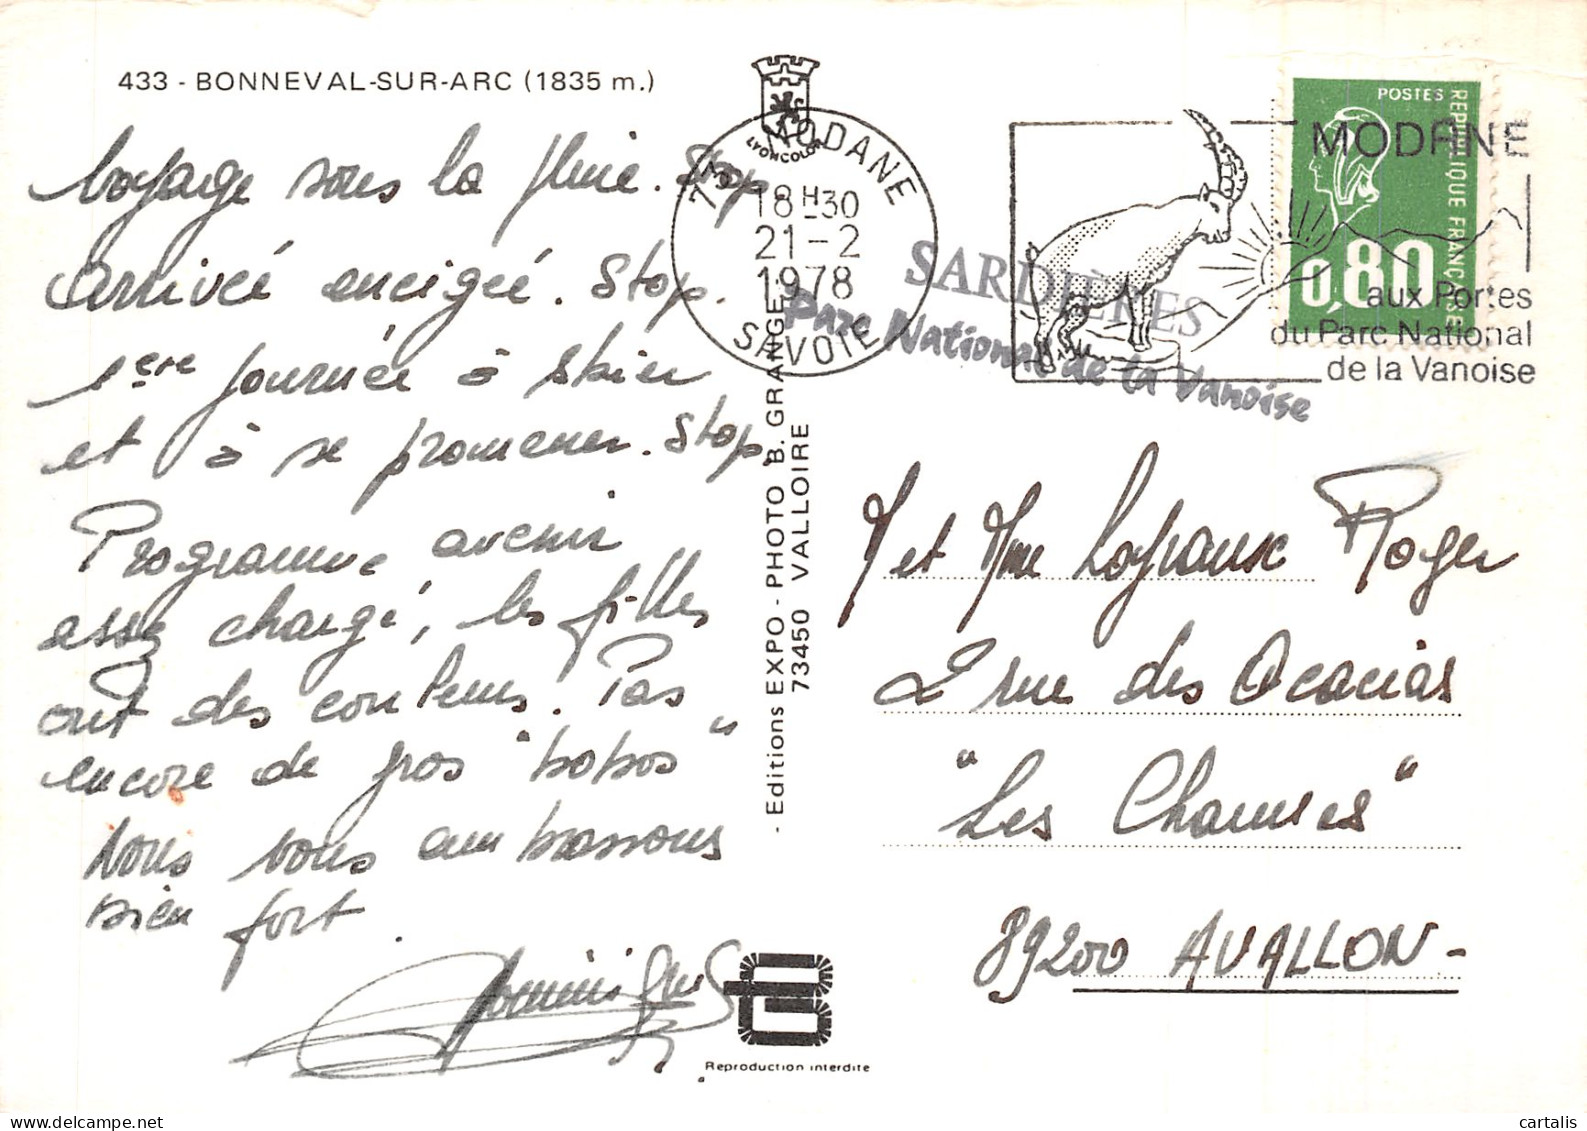 433 - BONNEVAL-SUR-ARC (1835 m.)
Voyage sous la pluie. Stop
Arrivée enneigée. Stop.
1ère journée à skier
et à se promener. Stop.
Programme avenir
assez chargé, les filles
ont des couleurs. Pas
encore de gros "bobos"
Nous vous embrassons
bien fort.
Dominique
LYONCOLOR
73 MODANE
18H30
21-2
1978
SAVOIE
SARDIÈRES
Parc National de la Vanoise
MODANE
aux Portes
du Parc National
de la Vanoise
POSTES
REPUBLIQUE FRANÇAISE
0,80
- Editions EXPO - PHOTO B. GRANGE -
73450 VALLOIRE
M et Mme Roger
2 rue des Acacias
"Les Chaumes"
89200 AVALLON -
Reproduction interdite
cartalis